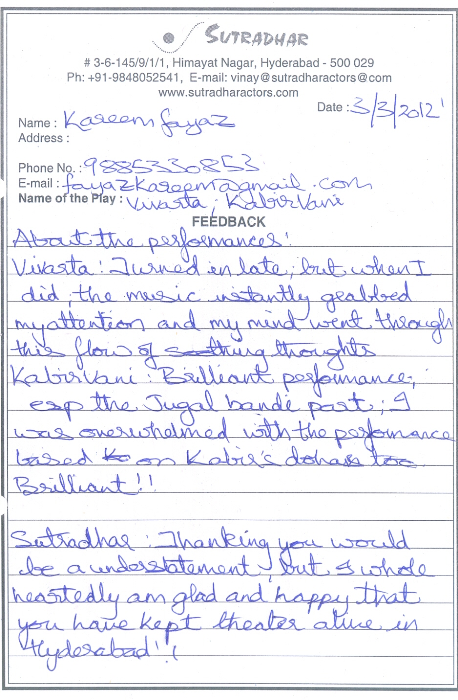 SUTRADHAR
# 3-6-145/9/1/1, Himayat Nagar, Hyderabad - 500 029
Ph: +91-9848052541, E-mail: vinay@sutradharactors@com
www.sutradharactors.com
Date : 3/3/2012
Name : Kareem fayaz
Address :
Phone No. : 9885330853
E-mail : fayazkareem@gmail.com
Name of the Play : Vivarta, KabirVani
FEEDBACK
About the performances:
Vivarta : Turned in late, but when I
did, the music instantly grabbed
my attention and my mind went through
this flow of soothing thoughts
KabirVani : Brilliant performance,
esp the Jugal bandi part ; I
was overwhelmed with the performance
based on Kabir's dohas too
Brilliant!!
Sutradhar : Thanking you would
be a understatement, but I whole
heartedly am glad and happy that
you have kept theater alive in
Hyderabad!!